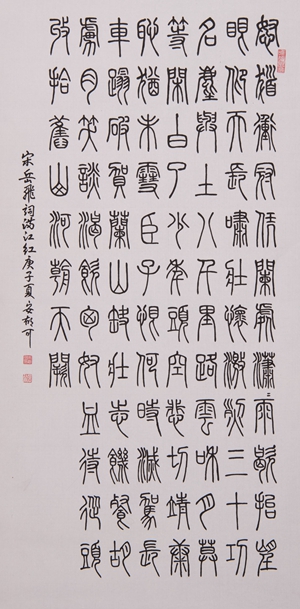 怒髮衝冠憑闌處瀟〻雨歇抬望
眼仰天長嘯壯懷激烈三十功
名塵與土八千里路雲和月莫
等閒白了少年頭空悲切靖康
恥猶未雪臣子恨何時滅駕長
車踏破賀蘭山缺壯志饑餐胡
虜肉笑談渴飲匈奴血待從頭
收拾舊山河朝天闕
宋岳飛詞滿江紅庚子夏安